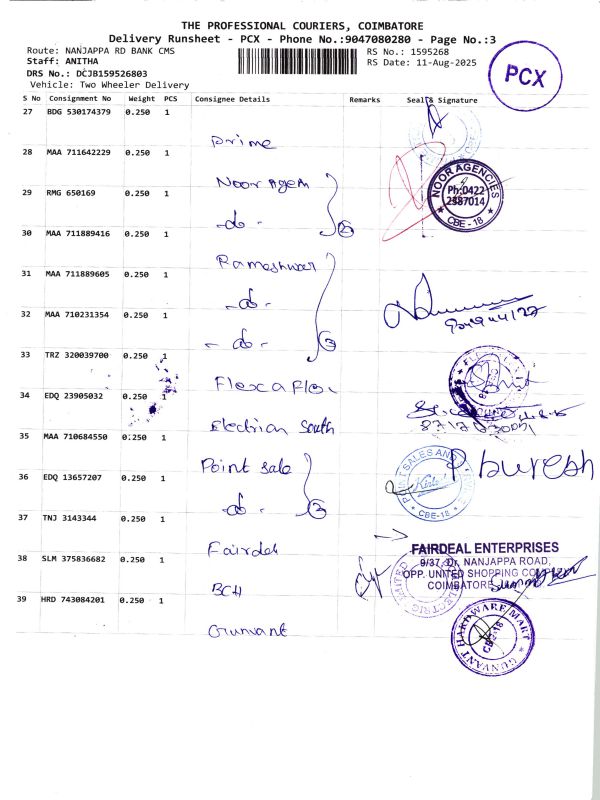 THE PROFESSIONAL COURIERS, COIMBATORE
Delivery Runsheet - PCX - Phone No.:9047080280 - Page No.:3
Route: NANJAPPA RD BANK CMS
RS No.: 1595268
Staff: ANITHA
RS Date: 11-Aug-2025
DRS No.: DCJB159526803
Vehicle: Two Wheeler Delivery
PCX
S No Consignment No Weight PCS Consignee Details Remarks Seal & Signature
27 BDG 530174379 0.250 1
Prime
28 MAA 711642229 0.250 1
Noor Agen
NOOR AGENCIES
Ph:0422
2387014
CBE - 18
29 RMG 650169 0.250 1
-do-
2
30 MAA 711889416 0.250 1
Rameshwar
31 MAA 711889605 0.250 1
-do-
32 MAA 710231354 0.250 1
-do-
3
33 TRZ 320039700 0.250 1
Flexaflo
34 EDQ 23905032 0.250 1
Electrian South
35 MAA 710684550 0.250 1
Point sale
POINT SALES AND
CBE-18
P. Suresh
36 EDQ 13657207 0.250 1
-do-
2
37 TNJ 3143344 0.250 1
Fairdeal
FAIRDEAL ENTERPRISES
9/37, Dr. NANJAPPA ROAD,
OPP. UNITED SHOPPING COMPLEX
COIMBATORE
38 SLM 375836682 0.250 1
BCH
39 HRD 743084201 0.250 1
Gunvant
GUNVANT HARDWARE MART
CBE-18